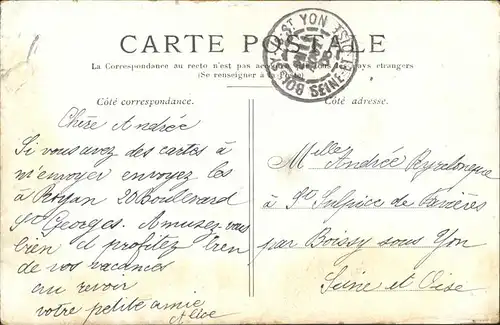 CARTE POSTALE
La Correspondance au recto n'est pas pays étrangers
(Se renseigner à la Poste)
Côté correspondance.
Chère Andrée
Si vous avez des cartes à
m'envoyer envoyez les
à Royan 20 Boulevard
St Georges. Amusez-vous
bien et profitez bien
de vos vacances
au revoir
votre petite amie
Côté adresse.
Mlle Andrée
à St Sulpice de Favières
par Boissy sous Yon
Seine et Oise